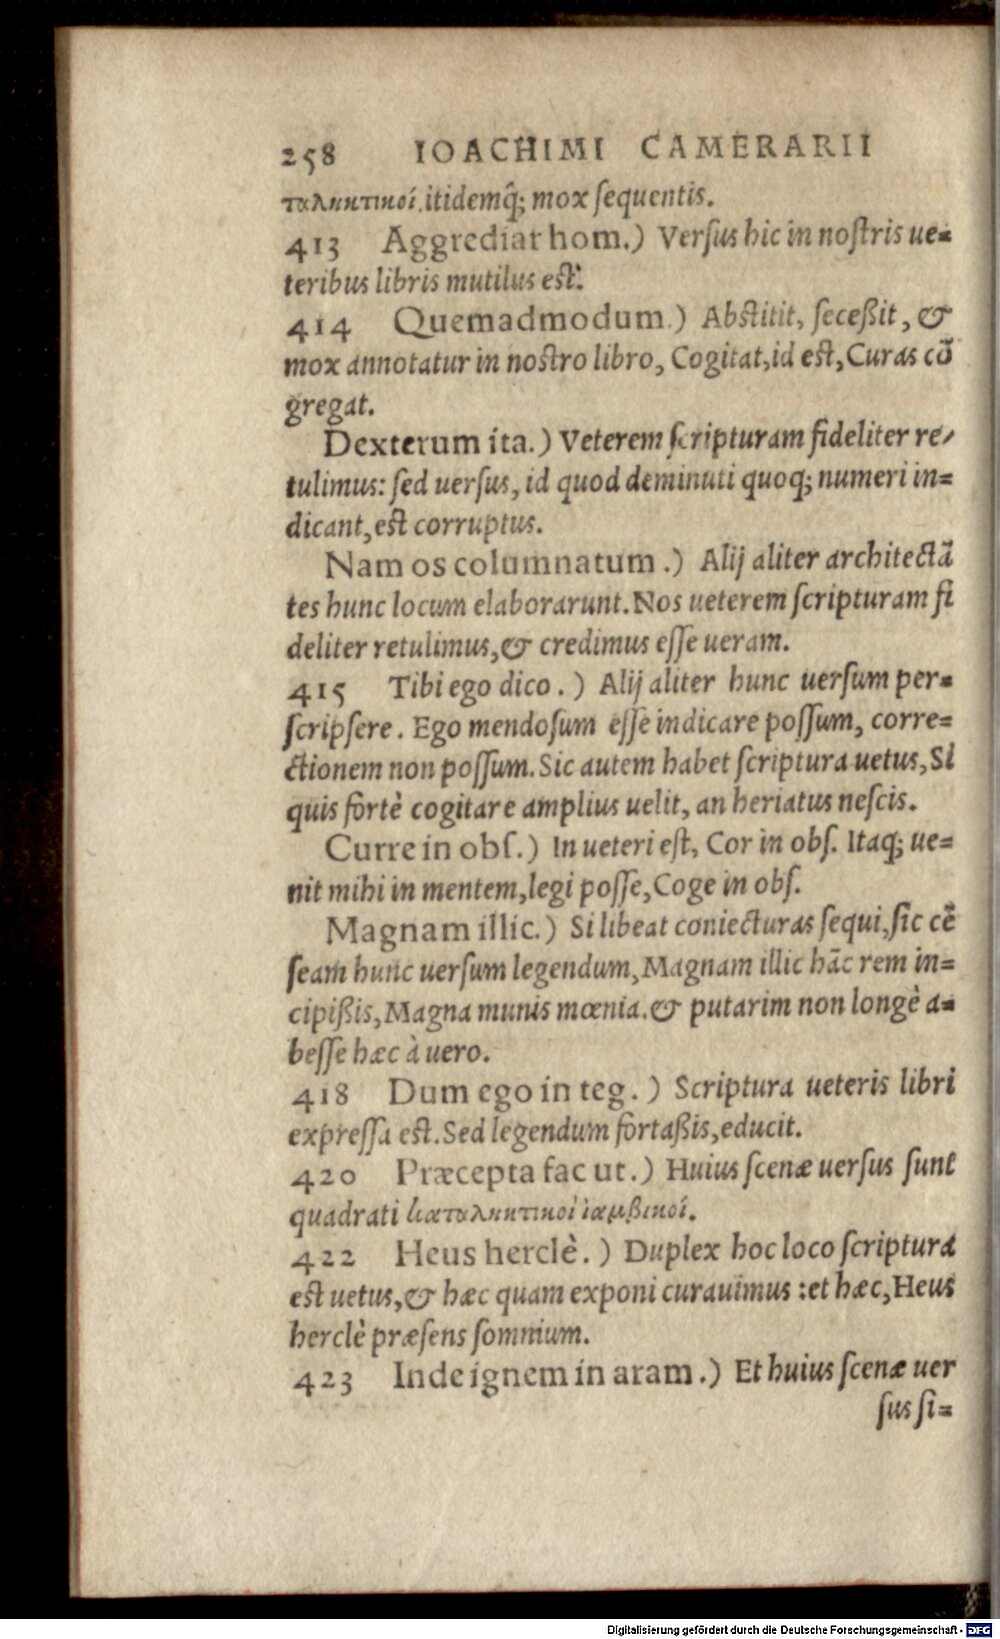 258 IOACHIMI CAMERARII
ταληκτικοί. itidemq́; mox ſequentis.
413 Aggrediar hom.) Verſus hic in noſtris ue=
teribus libris mutilus eſt.
414 Quemadmodum.) Abſtitit, ſeceßit, &
mox annotatur in noſtro libro, Cogitat, id eſt, Curas cō
gregat.
Dexterum ita.) Veterem ſcripturam fideliter re/
tulimus: ſed uerſus, id quod deminuti quoq; numeri in=
dicant, eſt corruptus.
Nam os columnatum.) Alij aliter architectā
tes hunc locum elaborarunt. Nos ueterem ſcripturam fi
deliter retulimus, & credimus eſſe ueram.
415 Tibi ego dico.) Alij aliter hunc uerſum per=
ſcripſere. Ego mendoſum eſſe indicare poſſum, corre=
ctionem non poſſum. Sic autem habet ſcriptura uetus, Si
quis fortè cogitare amplius uelit, an heriatus neſcis.
Curre in obſ.) In ueteri eſt, Cor in obſ. Itaq; ue=
nit mihi in mentem, legi poſſe, Coge in obſ.
Magnam illic.) Si libeat coniecturas ſequi, ſic cē
ſeam hunc uerſum legendum, Magnam illic hāc rem in=
cipißis, Magna munis mœnia. & putarim non longè a=
beſſe hæc à uero.
418 Dum ego in teg.) Scriptura ueteris libri
expreſſa eſt. Sed legendum fortaßis, educit.
420 Præcepta fac ut.) Huius ſcenæ uerſus ſunt
quadrati καταληκτικοὶ ἰαμβικοί.
422 Heus herclè.) Duplex hoc loco ſcriptura
eſt uetus, & hæc quam exponi curauimus: et hæc, Heus
herclè præſens ſomnium.
423 Inde ignem in aram.) Et huius ſcenæ uer
ſus ſi=
Digitalisierung gefördert durch die Deutsche Forschungsgemeinschaft - DFG